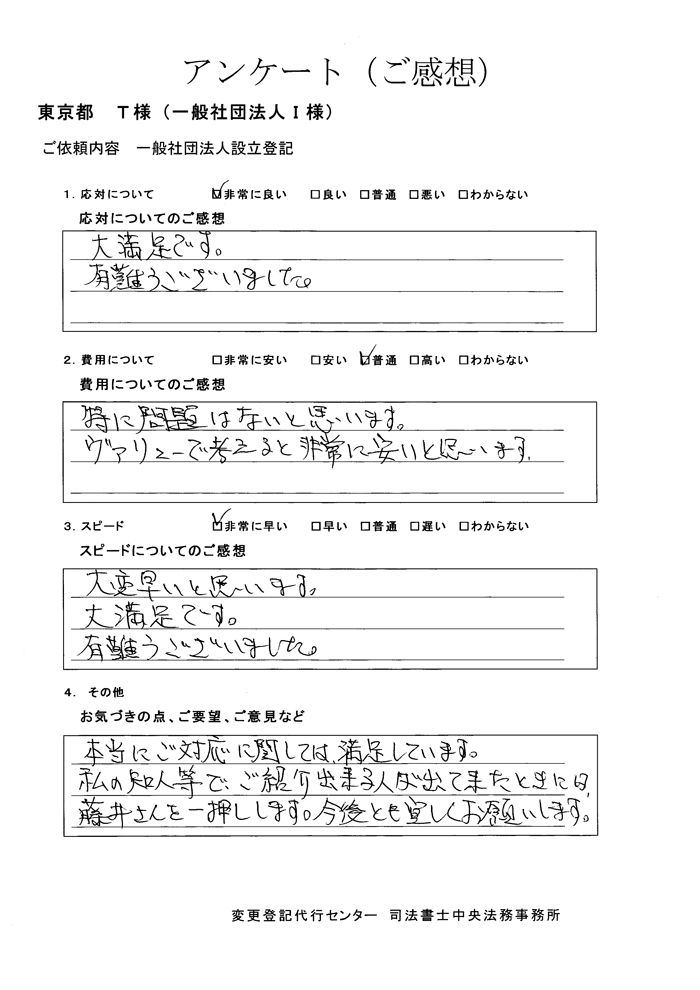 アンケート（ご感想）
東京都　T様（一般社団法人I様）
ご依頼内容　一般社団法人設立登記
1. 応対について　☑非常に良い　□良い　□普通　□悪い　□わからない
応対についてのご感想
大満足です。
有難うございました。
2. 費用について　□非常に安い　□安い　☑普通　□高い　□わからない
費用についてのご感想
特に問題はないと思います。
ヴァリューで考えると非常に安いと思います.
3. スピード　☑非常に早い　□早い　□普通　□遅い　□わからない
スピードについてのご感想
大変早いと思います。
大満足です。
有難うございました。
4. その他
お気づきの点、ご要望、ご意見など
本当にご対応に関しては、満足しています。
私の知人等で、ご紹介出来る人が出て来たときには、
藤井さんを一押しします。今後とも宜しくお願いします。
変更登記代行センター　司法書士中央法務事務所